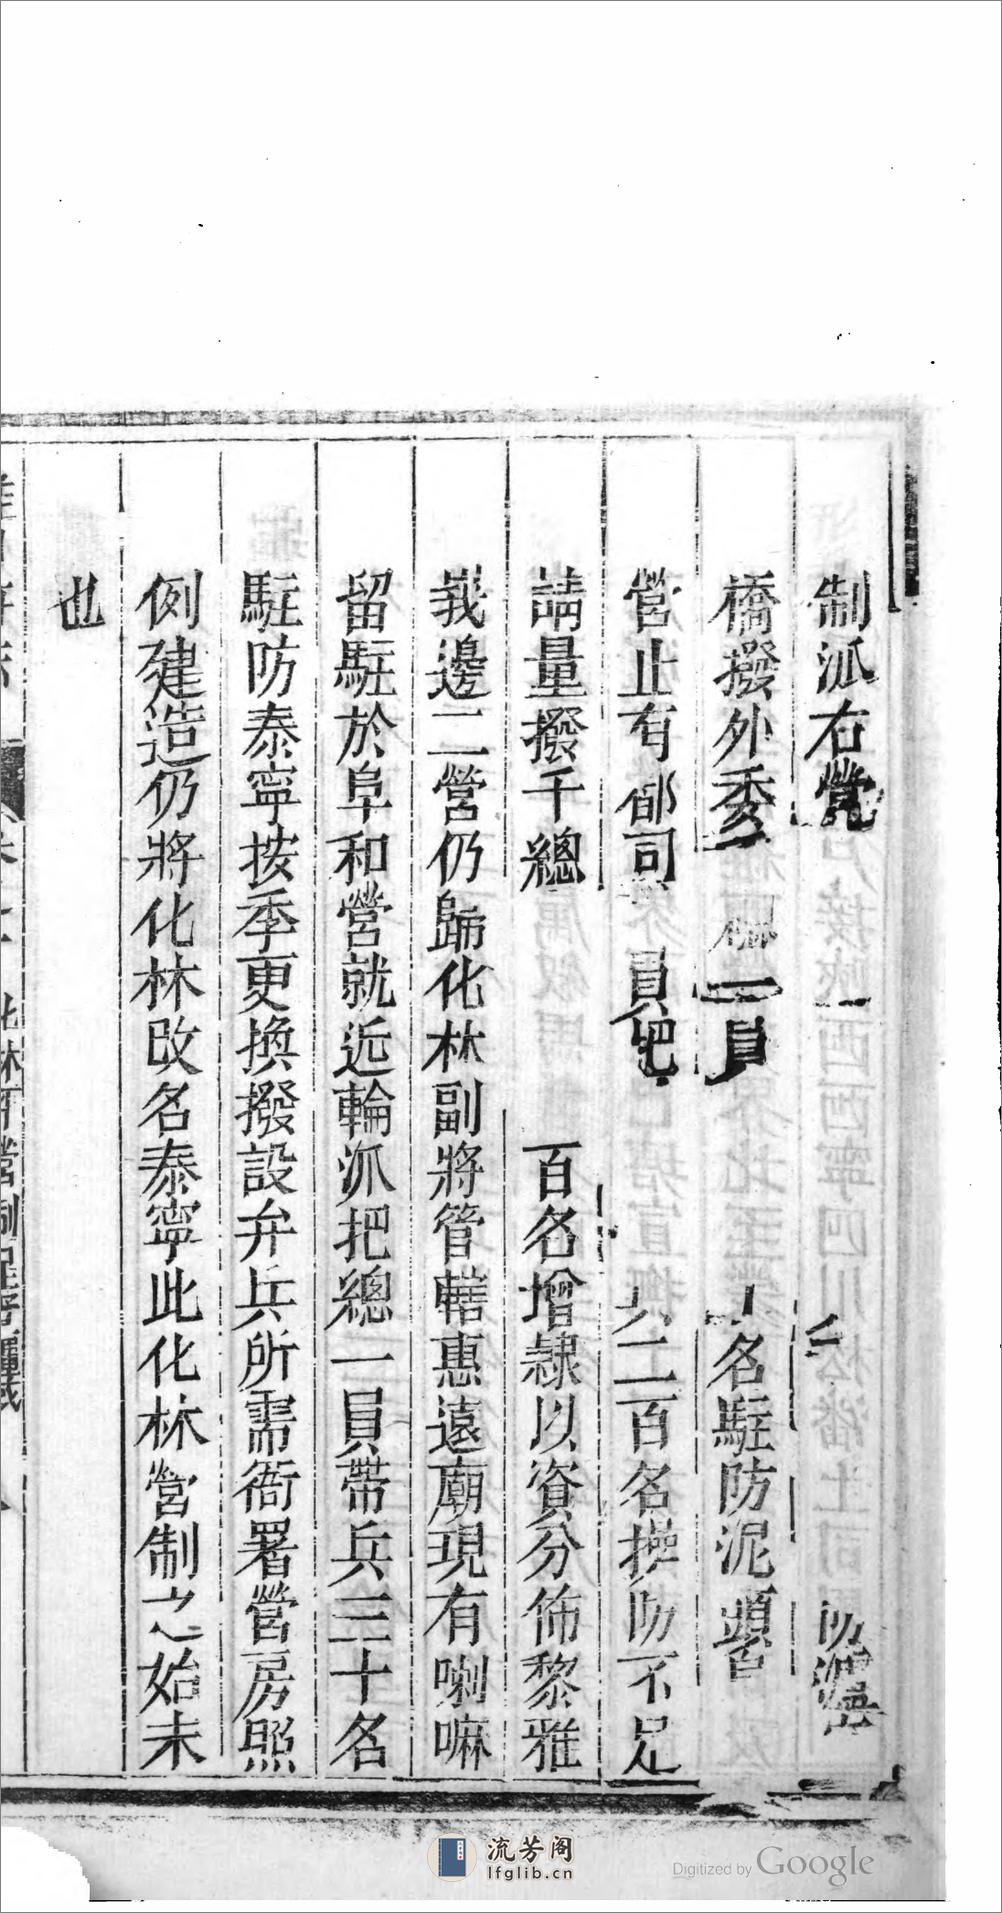 制派右營一二防瀘
橋撥外委一員名駐防泥頭
營止有都司員把兵二百名操防不足
請量撥千總百名增隸以資分佈黎雅
峩邊二營仍歸化林副將管轄惠遠廟現有喇嘛
留駐於阜和營就近輪派把總一員帶兵三十名
駐防泰寧按季更換撥設弁兵所需衙署營房照
例建造仍將化林改名泰寧此化林營制之始末
也
流芳阁
lfglib.cn
Digitized by Google